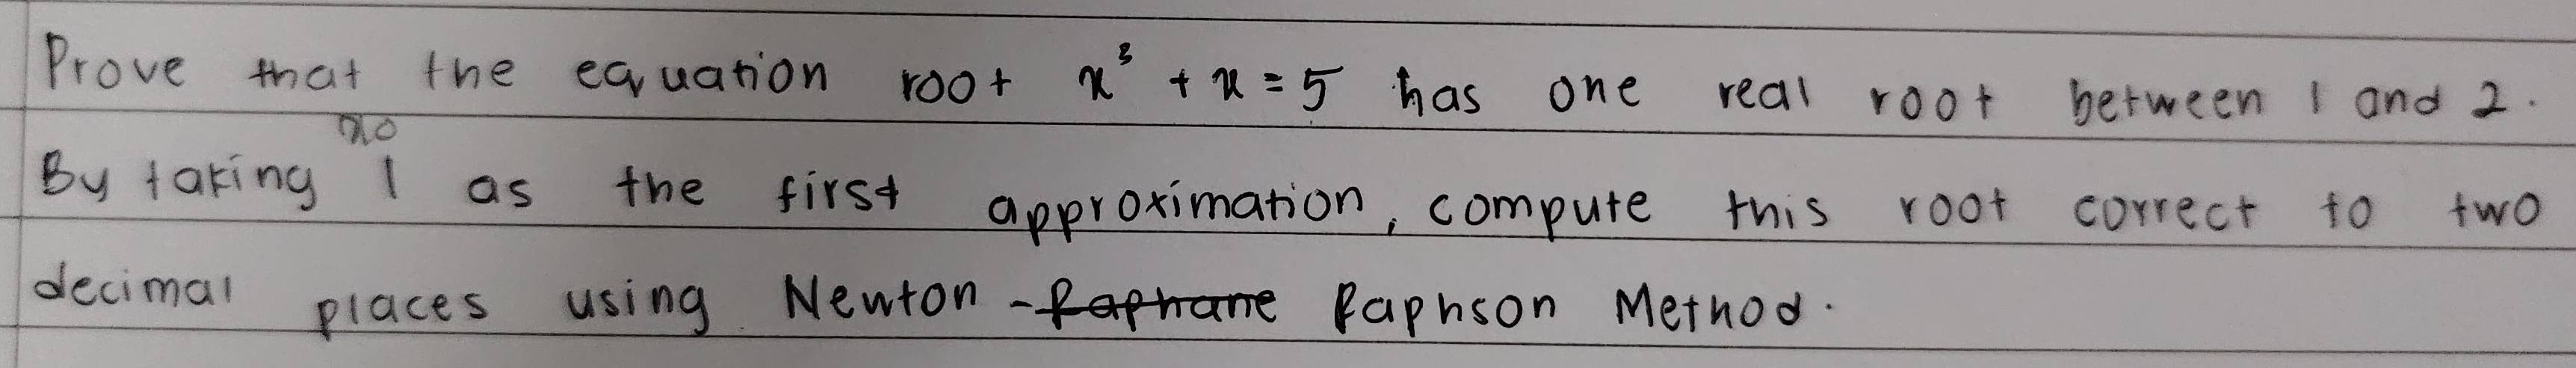 Prove that the equation root x³ + x = 5 has one real root between 1 and 2.
x0
By taking 1 as the first approximation, compute this root correct to two
decimal places using Newton - Raphane Raphson Method.